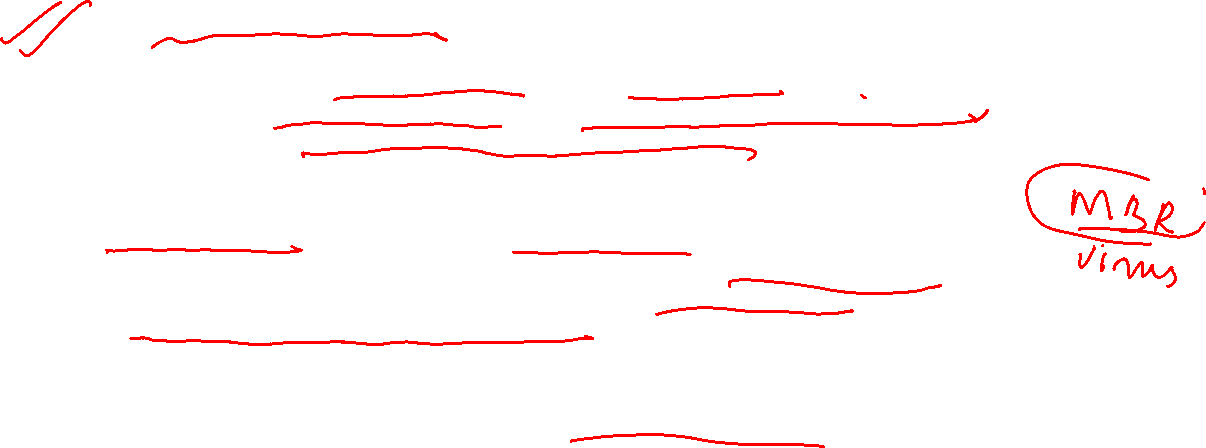 MBR
virus